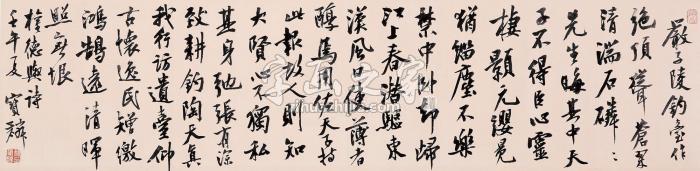 嚴子陵釣臺作
絕頂聳蒼翠
清湍石磷〻
先生晦其中天
子不得臣心靈
棲顥元纓冕
猶緇塵不樂
禁中卧却歸
江上春潛驅東
漢風日使薄者
醇焉用佐天子特
此報故人則知
大賢心不獨私
其身弛張有深
致耕釣陶天真
我行訪遺臺仰
古懷逸民矰繳
鴻鵠遠清暉
照無垠
權德輿詩
壬午夏 寶麟